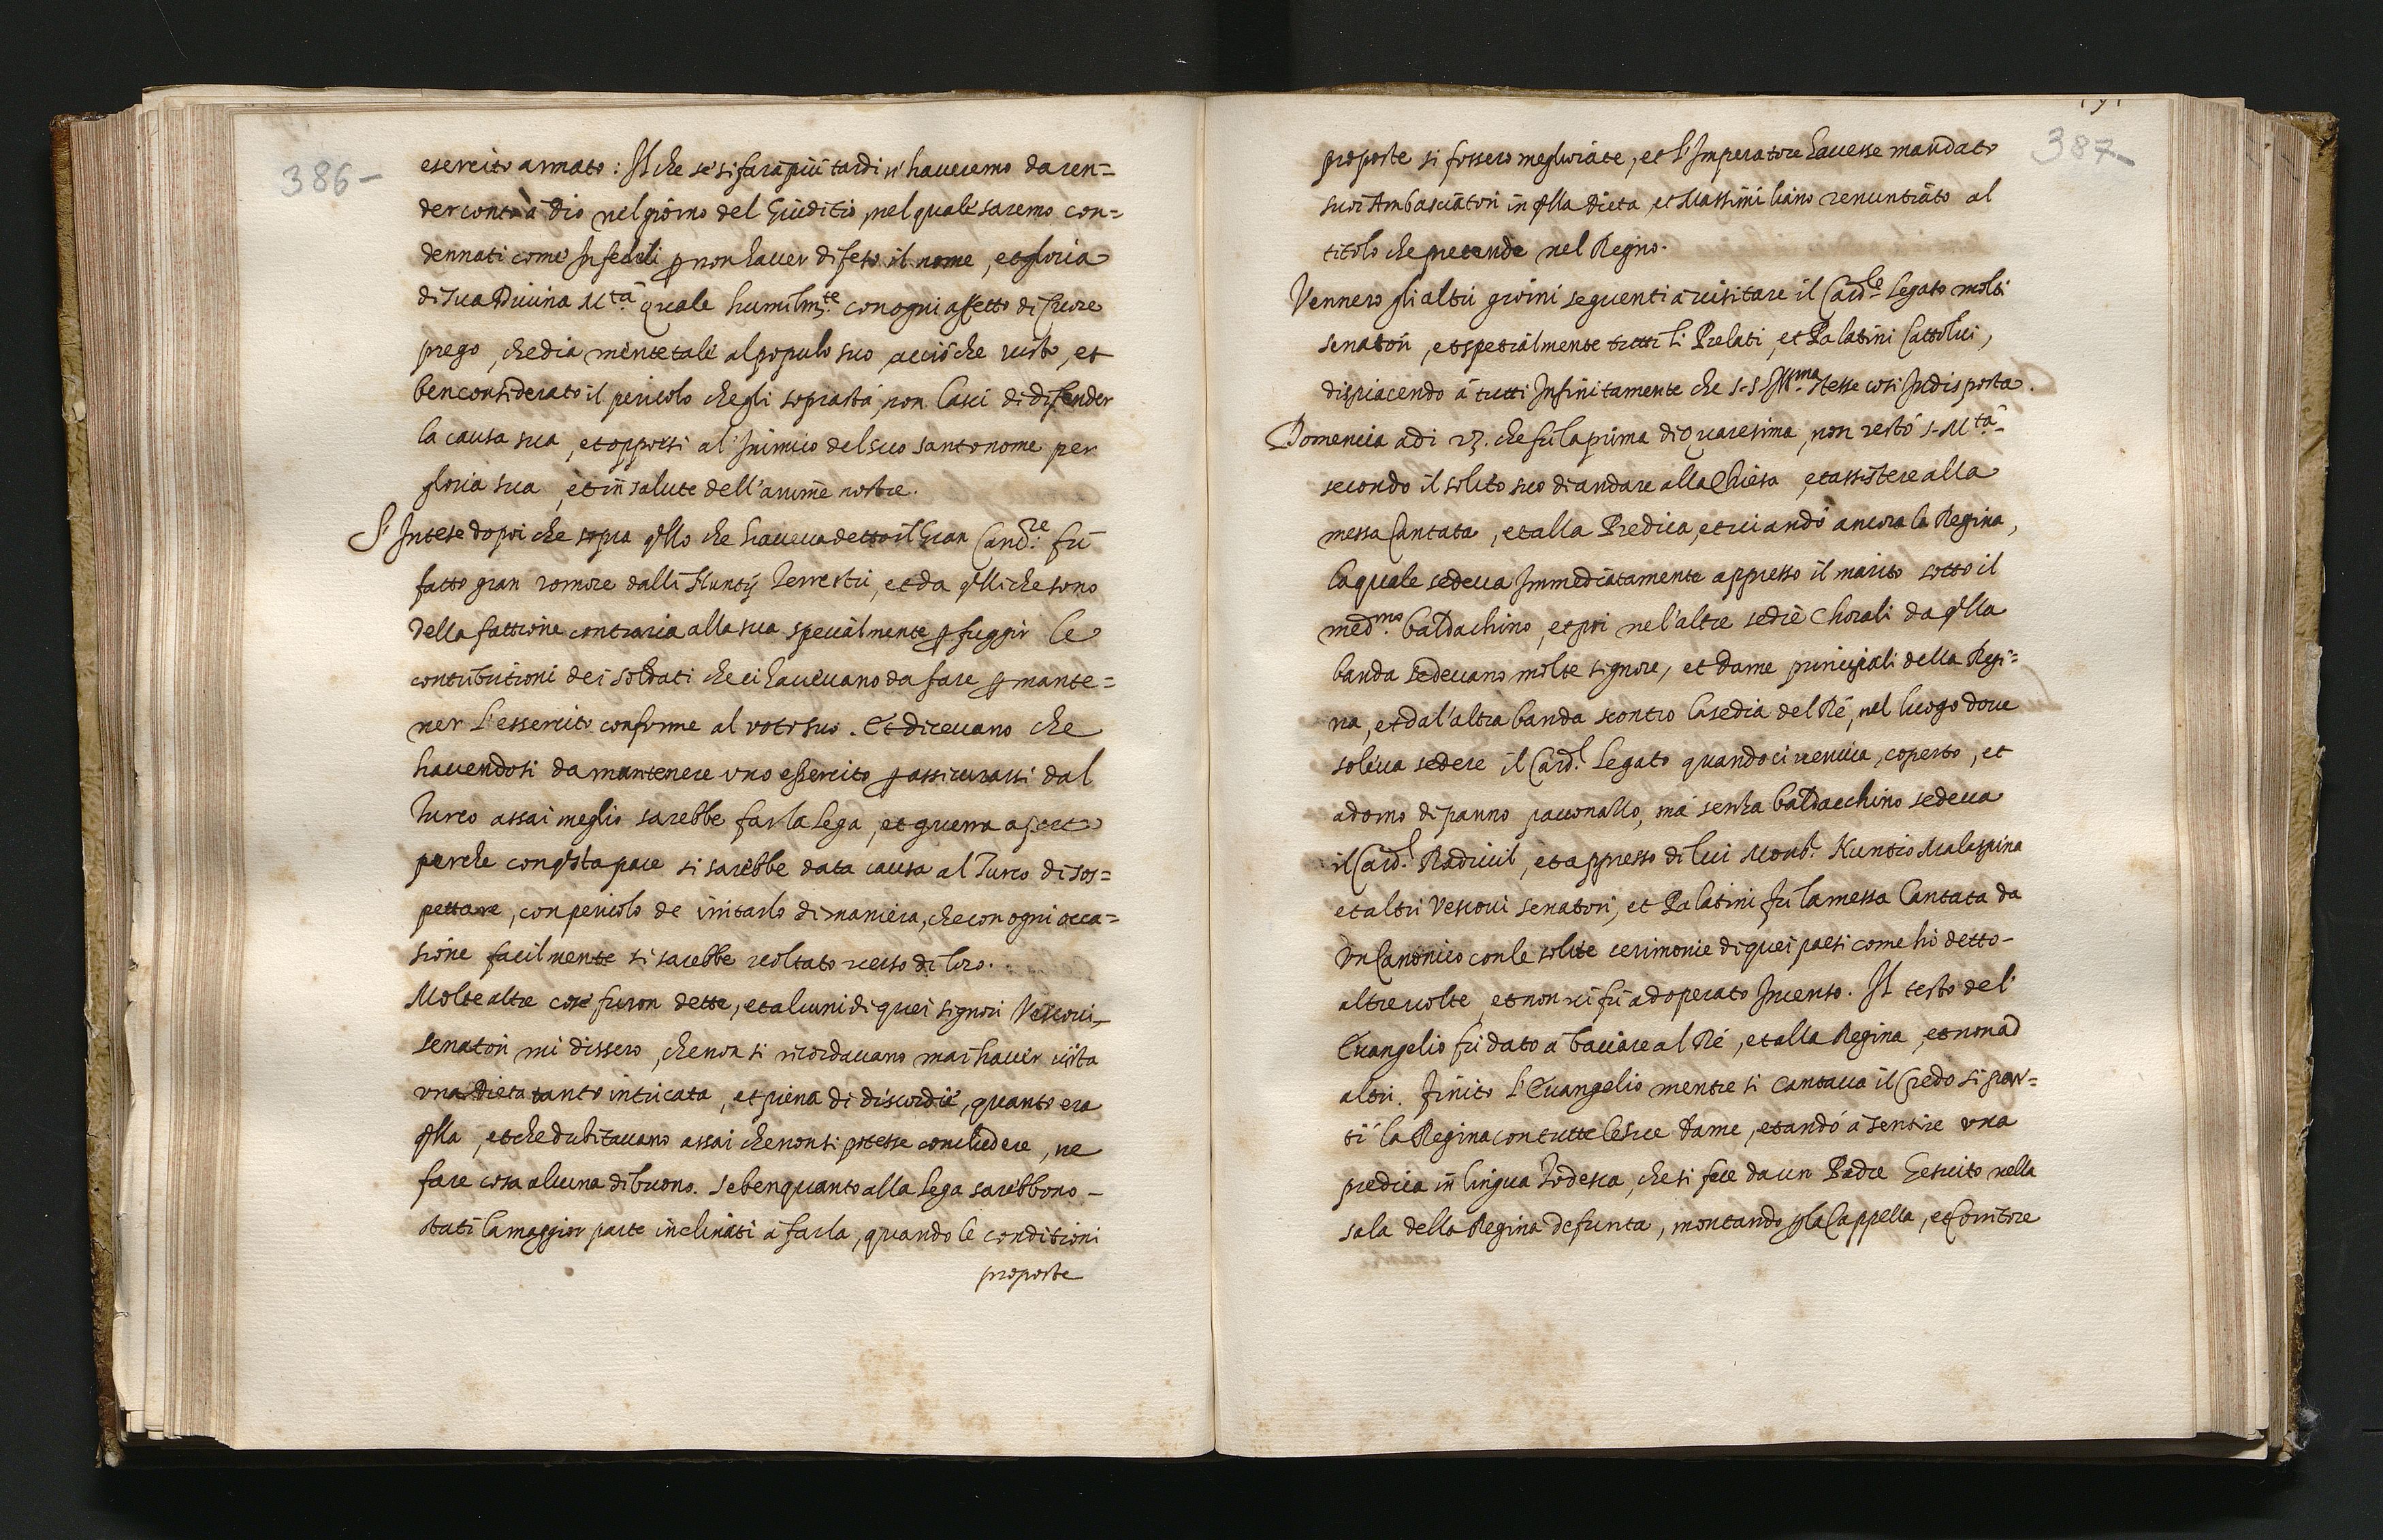 386-
esercito armato: Il che se si farà più tardi n'haveremo da ren=
der conto à Dio nel giorno del Giuditio, nel quale saremo con=
dennati come Infedeli ꝑ non haver difeso il nome, et gloria
di sua Divina M.tà Quale humilm.te con ogni affetto di Cuore
prego, che dia mente tale al populo suo, acciò che visto, et
ben considerato il pericolo che gli soprastà, non lasci di difender
la causa sua, et opporsi al'Inimico del suo santo nome per
gloria sua, et in salute dell'anime nostre.
S'Intese dopoi che sopra qllo che haveva detto il Gran Canc.re fù
fatto gran romore dalli Nuntij Terrestri, et da qlli che sono
della fattione contraria alla sua specialmente ꝑ fuggir le
contributioni dei soldati che ci havevano da fare ꝑ mante=
ner l'essercito conforme al voto suo. Et dicevano che
havendosi da mantenere uno essercito ꝑ assicurarsi dal
Turco assai meglio sarebbe far la Lega, et guerra aperta
perche con qsta pace si sarebbe data causa al Turco di sos=
pettare, con pericolo de irritarlo di maniera, che con ogni occa=
sione facilmente si sarebbe voltato verso di loro.
Molte altre cose furon dette, et alcuni di quei signori Vescovi,
senatori mi dissero, che non si ricordavano mai haver vista
una Dieta tanto intricata, et piena di discordie, quanto era
qlla, et che dubitavano assai che non si potesse concludere, ne
fare cosa alcuna di buono. Se ben quanto alla Lega sarebbono -
stati la maggior parte inclinati à farla, quando le conditioni
proposte
387-
proposte si fossero megliorate, et l'Imperatore havesse mandato
suoi Ambasciatori in qlla Dieta, et Massimiliano renuntiato al
titolo che pretende nel Regno.
Vennero gli altri giorni seguenti à visitare il Card.le Legato molti
senatori, et spetialmente tutti li Prelati, et Palatini Cattolici,
dispiacendo à tutti Infinitamente che S.S. Ill.ma stesse così Indisposta.
Domenica adi 23. che fu la prima di Quaresima, non restò S. M.tà
secondo il solito suo di andare alla Chiesa, et assistere alla
messa Cantata, et alla Predica, et vi andò ancora la Regina,
la quale sedeva Immediatamente appresso il marito sotto il
med.mo baldachino, et poi nel'altre sedie Chorali da qlla
banda sedevano molte signore, et dame principali della Regi=
na, et dal'altra banda scontro la sedia del Rè, nel luogo dove
soleva sedere il Card.l Legato quando ci veniva, coperto, et
adorno di panno paonazzo, mà senza baldacchino sedeva
il Card.l Radivil, et appresso di lui Mons.r Nuntio Malaspina
et altri Vescovi senatori, et Palatini fu la messa Cantata da
Un Canonico con le solite cerimonie di quei paesi come hò detto -
altre volte, et non vi fù adoperato Incenso. Il testo del'
Evangelio fù dato à baciare al Rè, et alla Regina, et non ad
altri. Finito l'Evangelio mentre si cantava il Credo si par=
tì la Regina con tutte le sue dame, et andò à sentire una
predica in lingua Todesca, che si fece da un Padre Gesuito nella
sala della Regina defunta, montando ꝑ la Cappella, et Corritore